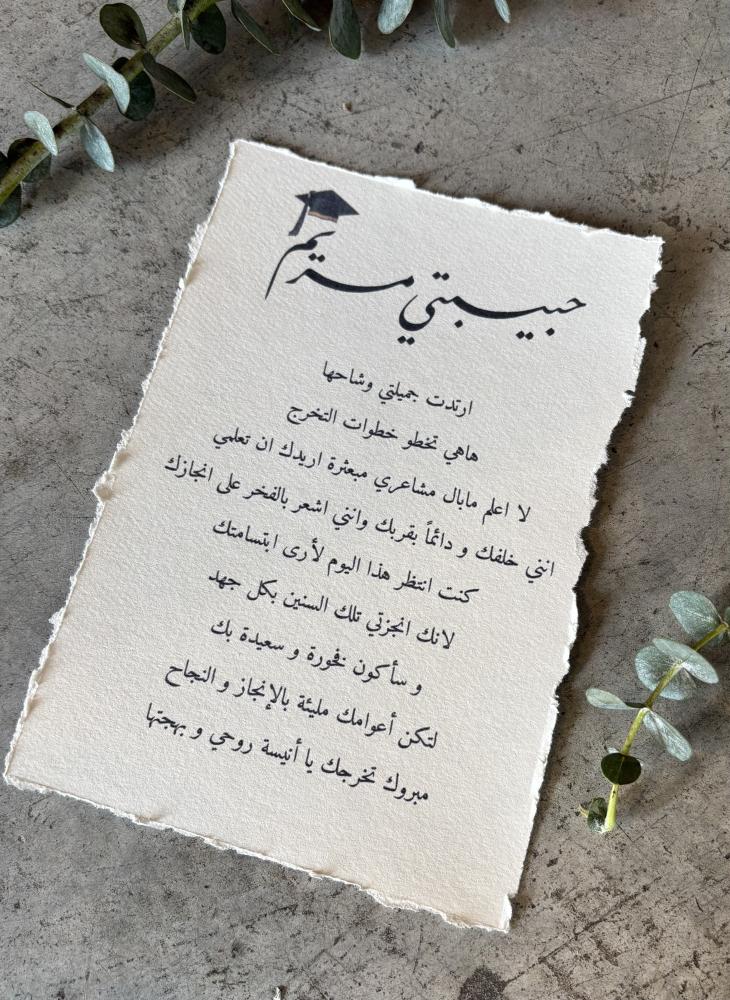 حبيبتي مريم
ارتدت جميلتي وشاحها
هاهي تخطو خطوات التخرج
لا اعلم مابال مشاعري مبعثرة اريدك ان تعلمي
انني خلفك و دائماً بقربك وانني اشعر بالفخر على انجازك
كنت انتظر هذا اليوم لأرى ابتسامتك
لانك انجزتي تلك السنين بكل جهد
و سأكون فخورة و سعيدة بك
لتكن أعوامك مليئة بالإنجاز و النجاح
مبروك تخرجك يا أنيسة روحي و بهجتها